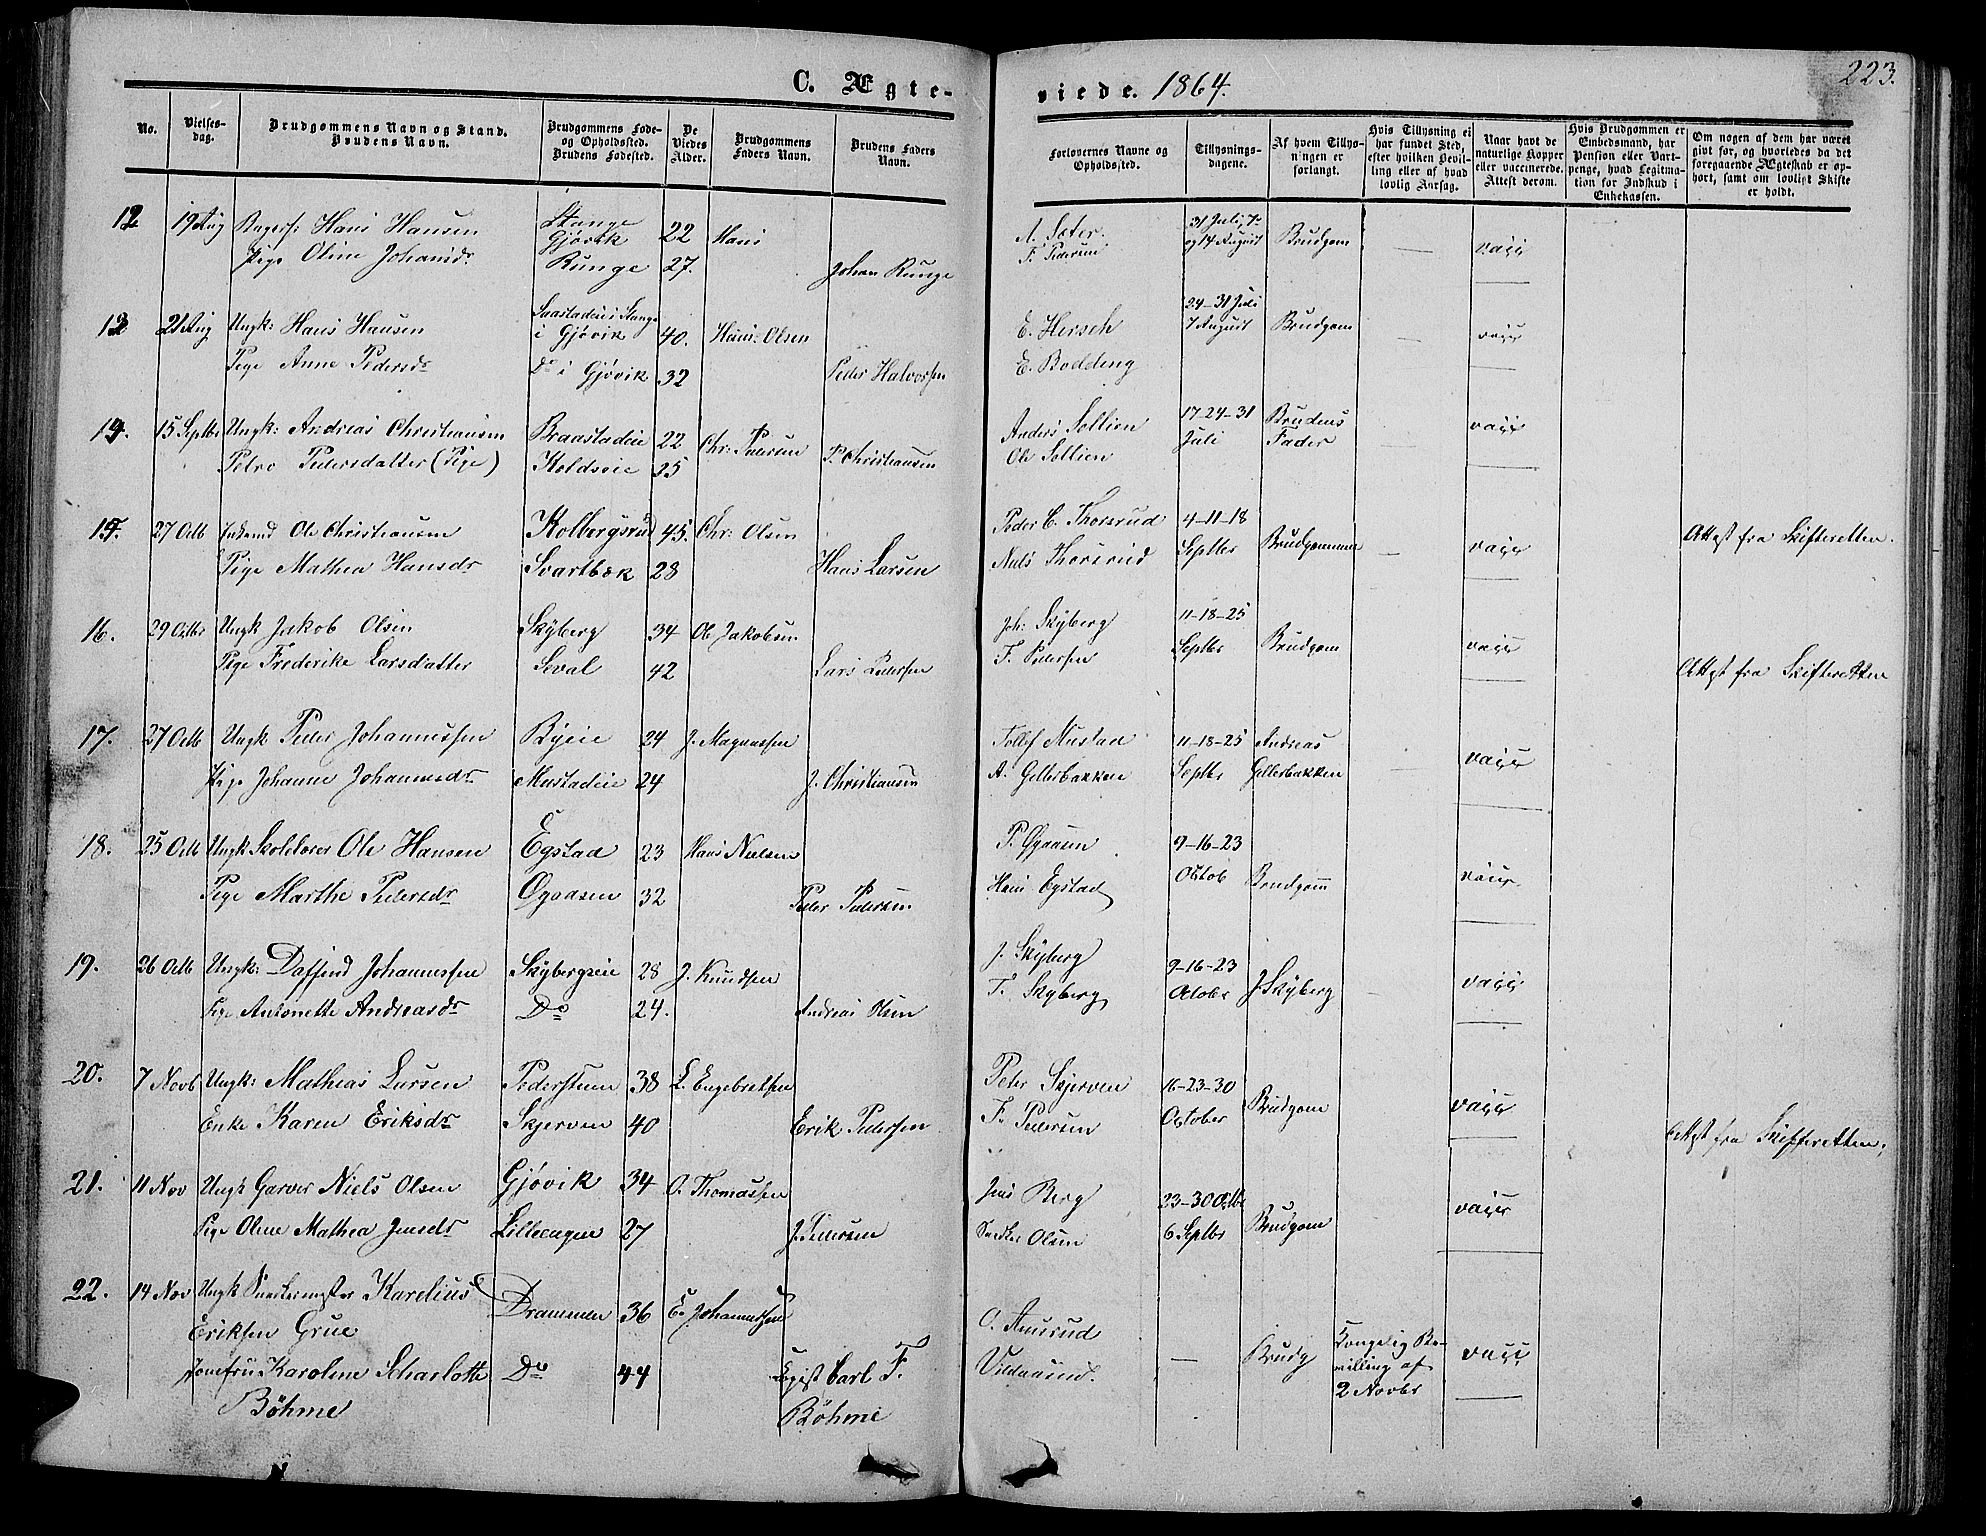 C. Ægteviede. 1864.
223.
No.
Vielses-
dag.
Brudgommens Navn og Stand.
Brudens Navn.
Brudgommens Føde-
og Opholdssted.
Brudens Fødested.
De
Viedes
Alder.
Brudgommens
Faders Navn.
Brudens Faders
Navn.
Forlovernes Navne og
Opholdssted.
Tillysnings-
dagene.
Af hvem Tillys-
ningen er
forlangt.
Hvis Tillysning ei
har fundet Sted,
efter hvilken Bevil-
ling eller af hvad
lovlig Aarsag.
Naar havt de
naturlige Kopper
eller vaccinerede.
Attest derom.
Hvis Brudgommen er
Embedsmand, har
Pension eller Vart-
penge, hvad Legitima-
tion for Indskud i
Enkekassen.
Om nogen af dem har været
gift før, og hvorledes da det
foregaaende Ægteskab er op-
hørt, samt om lovligt Skifte
er holdt.
12 19 Aug Hans Hansen Stange Gjøvik 22 Hans A. Sæter. 31 Juli, 7- og 14 August Brudgom — vacc
Pige Oline Johansdr Runge 27. Johan Runge F. Pedersen —
13 21 Aug Ungk: Hans Hansen i Gjøvik 40. Hans Olsen E. Hersch 24-31 Juli 7 August Brudgom — vacc
Pige Anne Pedersdr Do i Gjøvik 32 Peder Halvorsen E. Bodding —
14. 15 Septbr Ungk: Andreas Christiansen Braastadeie 22 Chr: Pedersen Anders Sollien 17-24-31 Juli Brudens Fader vacc
Petro Pedersdatter (Pige) Koldseie 25 P. Christiansen Ole Sollien —
15. 27 Octb Ole Christiansen Kolbergsrud 45. Chr: Olsen Peder C. Thorsrud 4-11-18 Septbr Brudgommen — vacc Attest fra Skifteretten.
Pige Mathea Hansdr Svartbæk 28 Hans Larsen Niels Thorsrud —
16. 29 Octbr Ungk Jakob Olsen Skyberg 34 Ole Jakobsen Joh: Skyberg 11-18-25 Septbr Brudgom vacc
Pige Frederike Larsdatter Seval 42 Lars Pedersen F. Pedersen — Attest fra Skifteretten
17. 27 Octb Ungk Peder Johannessen Byeie 24 J. Magnussen Tollef Mustad 11-18-25 Septbr Andreas Gellerbakken — vacc
Pige Johanne Johannesdr Mustadeie 24 J. Christiansen A. Gellerbakken —
18. 25 Octb Ungk Skolelærer Ole Hansen Egstad 23 Hans Nielsen P. Øgaasen 9-16-23 Octob Brudgom vacc
Pige Marthe Pedersdr Øgaasen 32 Peder Pedersen Hans Egstad —
19. 26 Octb Ungk: Daffind Johannessen Skybergseie 28 J. Knudsen J. Skyberg 9-16-23 Octobr J. Skyberg — vacc
Pige Antonette Andreasdr Do 24. Andreas Olsen F. Skyberg —
20. 7 Novb Ungk: Mathias Larsen Pederstuen 38 L. Engebretsen Peter Skjerven 16-23-30 October Brudgom vacc
Enke Karen Eriksdr Skjerven 40 Erik Pedersen F. Pedersen — Attest fra Skifteretten;
21. 11 Nov Ungk Garver Niels Olsen Gjøvik 34 O. Thomassen Jens Berg 23-30 Octbr 6 Septbr Brudgom vacc
Pige Oline Mathea Jensdr Lilleengen 27 J. Pedersen Olsen —
22. 14 Nov Ungk Karelius Eriksen Grue Drammen 36 E. Johannessen O. Amrud — Brudg Kongelig Be-
villing af
2 Novbr vacc
Jomfru Karoline Scharlotte Böhme Do 44 Carl F. Böhme —